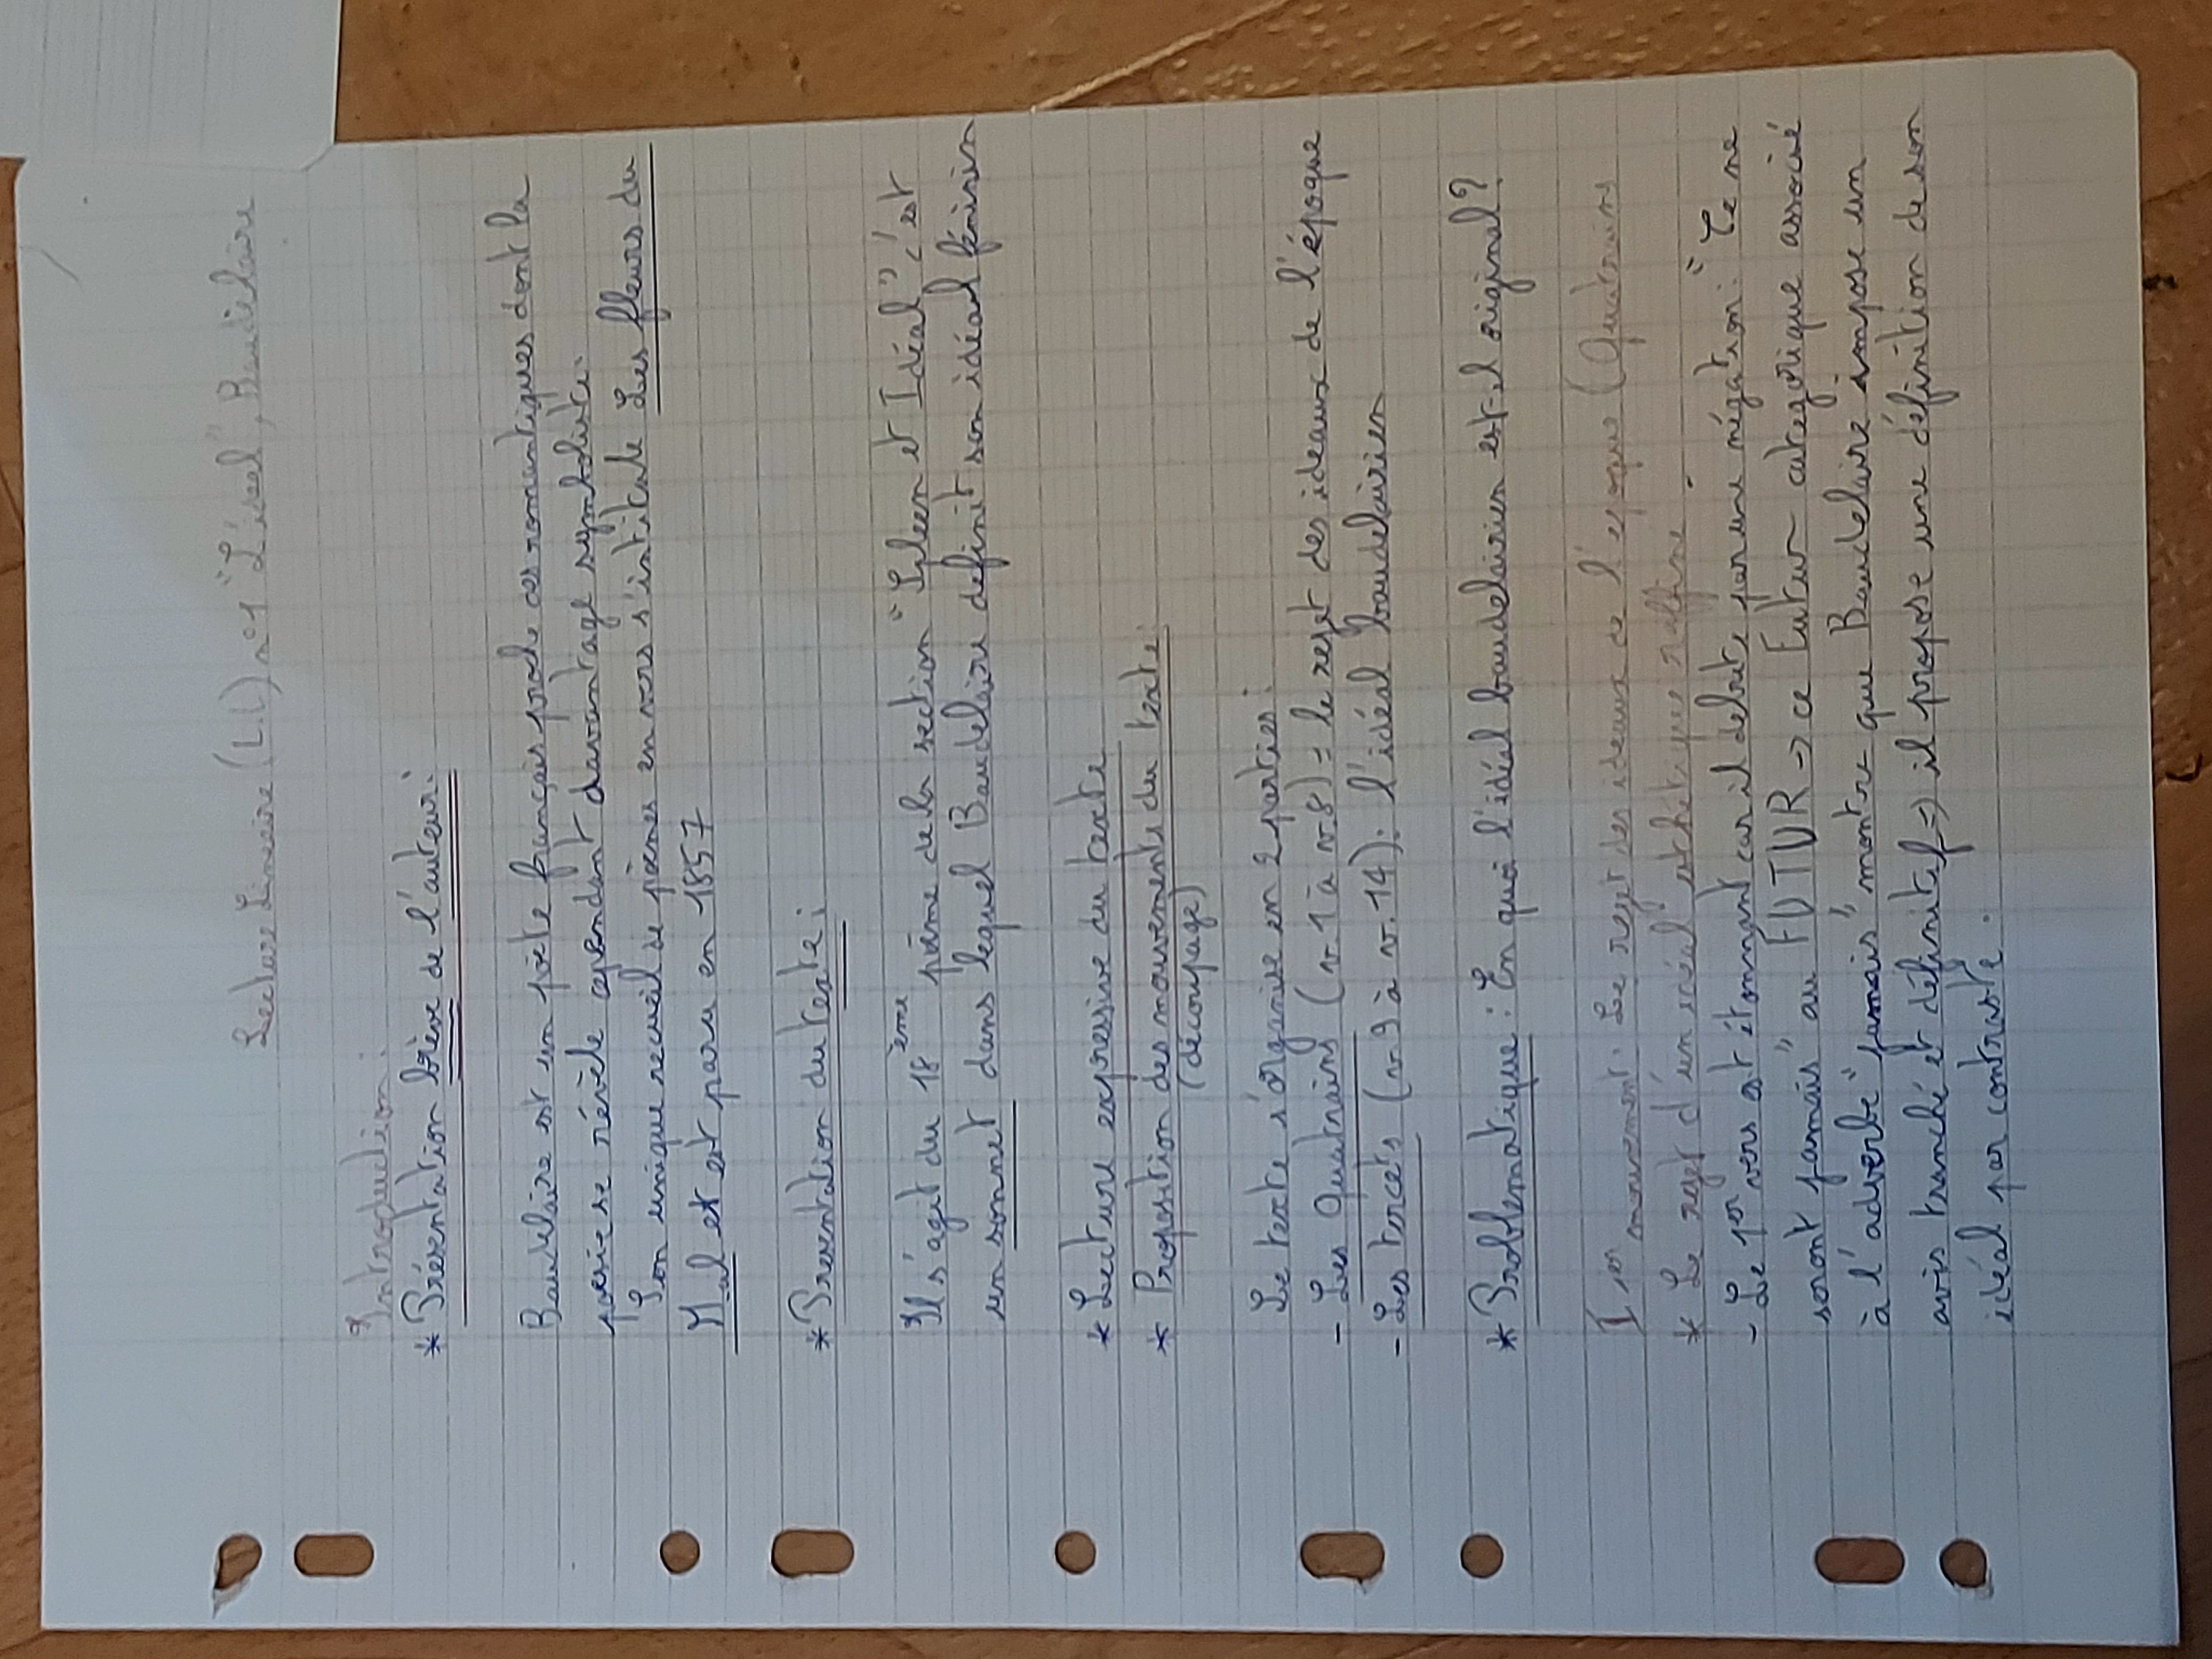 Lecture Linéaire (L.L) n°1 "L'idéal", Baudelaire
Introduction :
* Présentation brève de l'auteur :
Baudelaire est un poète français proche des romantiques dont la
poésie se révèle cependant davantage symboliste.
Son unique recueil de poèmes en vers s'intitule Les fleurs du
Mal et est paru en 1857
* Présentation du texte :
Il s'agit du 18ème poème de la section "Spleen et Idéal", c'est
un sonnet dans lequel Baudelaire definit son idéal féminin
* Lecture expressive du texte
* Proposition des mouvements du texte :
(découpage)
Le texte s'organise en 2 parties :
- Les Quatrains (v.1 à v.8) = le rejet des ideaux de l'époque
- Les tercets (v.9 à v.14) : l'idéal baudelairien
* Problématique : En quoi l'idéal baudelairien est-il original ?
I 1er mouvement : Le rejet des ideaux de l'époque (Quatrains
* Le rejet d'un idéal esthétique raffiné
- Le 1er vers est étonnant car il debute par une négation : "Ce ne
seront jamais" au FUTUR -> ce futur catégorique associé
à l'adverbe "jamais" montre que Baudelaire impose un
avis tranché et définitif => il propose une définition de son
idéal par contraste.